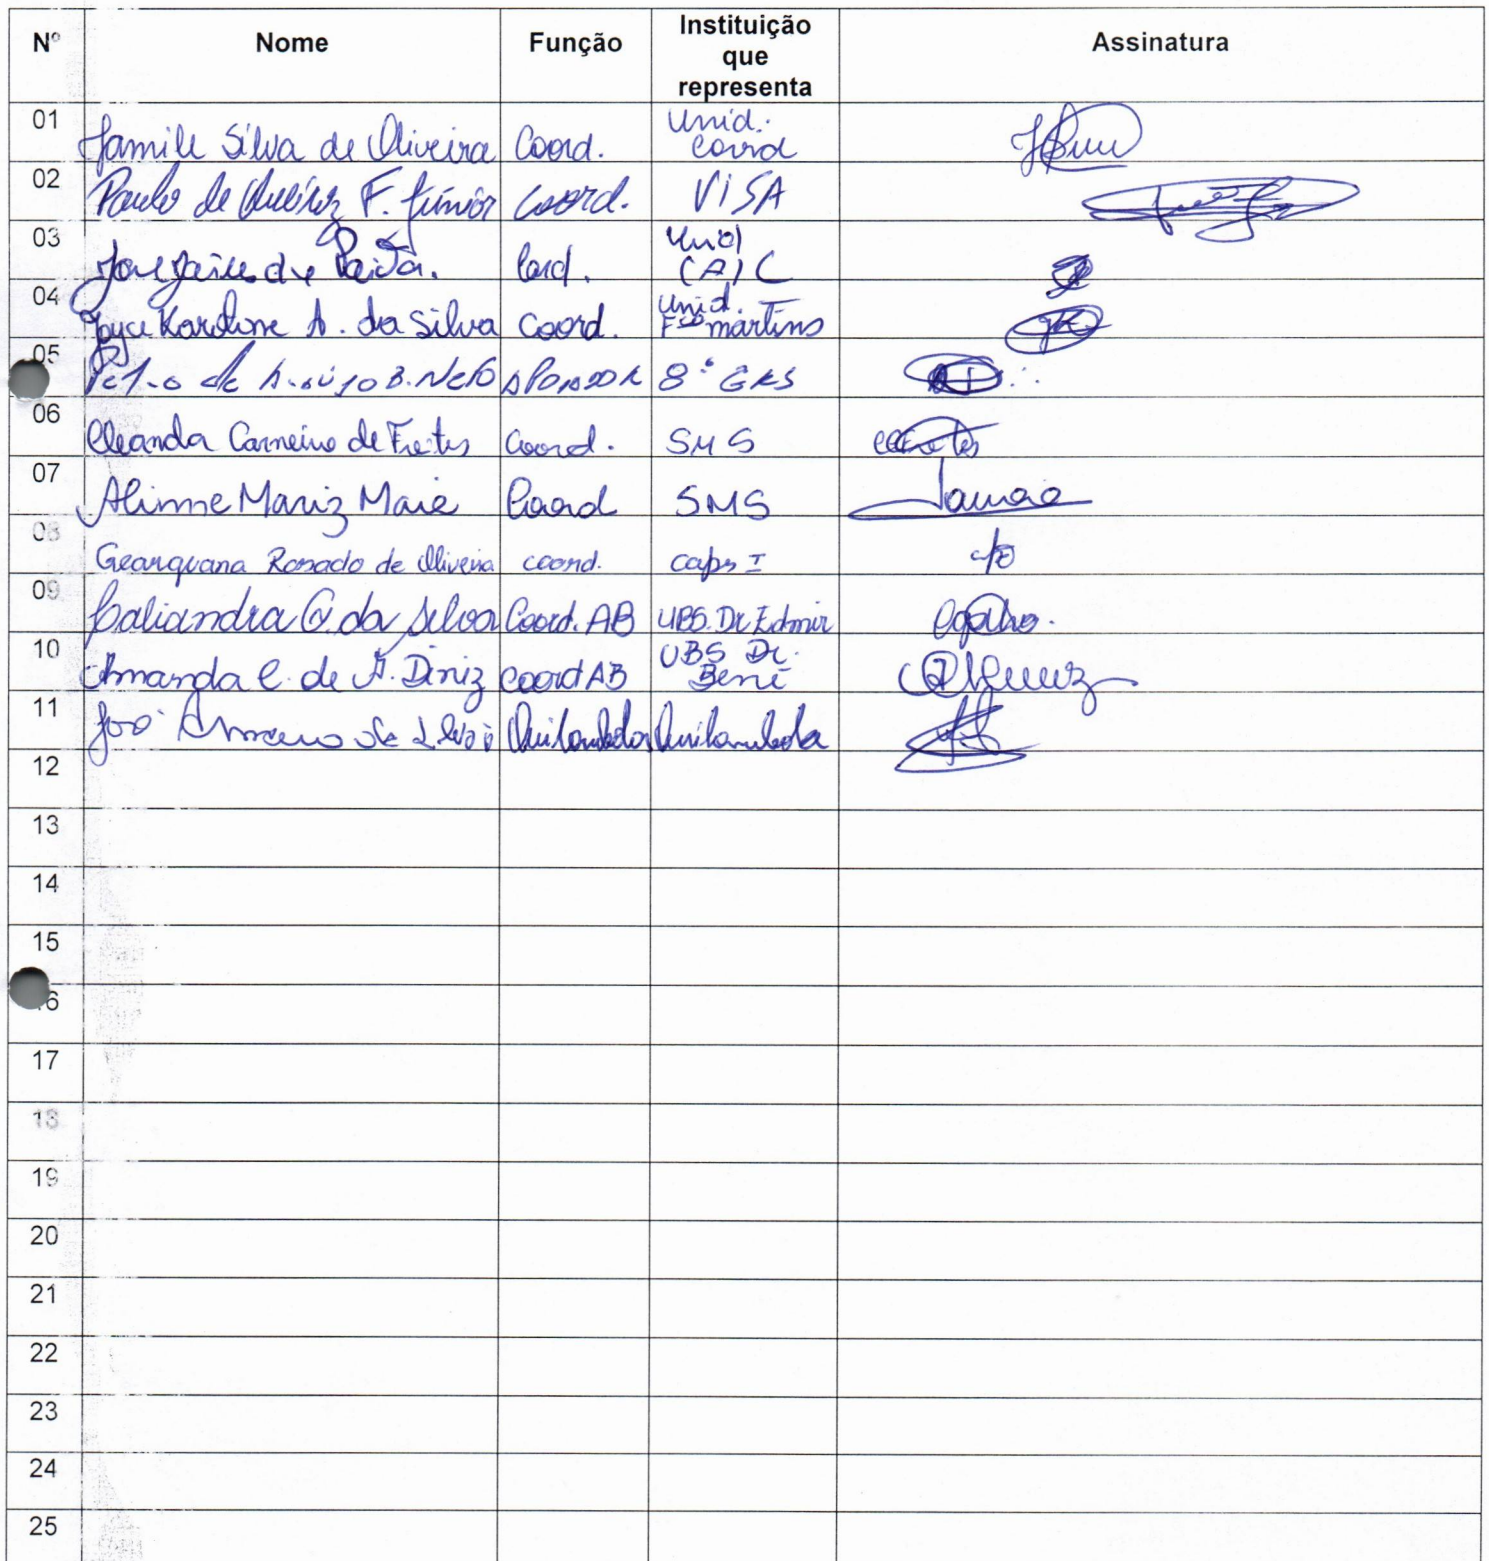 Nº Nome Função Instituição que representa Assinatura
01 Jamile Silva de Oliveira Coord. Unid. Coord
02 Paulo de Queiroz F. Júnior Coord. VISA
03 de Coord. Unid CAIC
04 Joyce Karoline A. da Silva Coord. Unid. Fco martins
05 de B. Neto 8ª
06 Cleanda Carneiro de Freitas Coord. SMS
07 Alinne Mariz Maia Coord SMS
08 Gearquana Rosado de Oliveira coord. caps I
09 Caliandra G. da Silva Coord. AB UBS. Dr Edmir
10 Amanda C. de A. Diniz coord AB UBS Dr. Benè
11 José Quilombola Quilombola
12
13
14
15
16
17
18
19
20
21
22
23
24
25